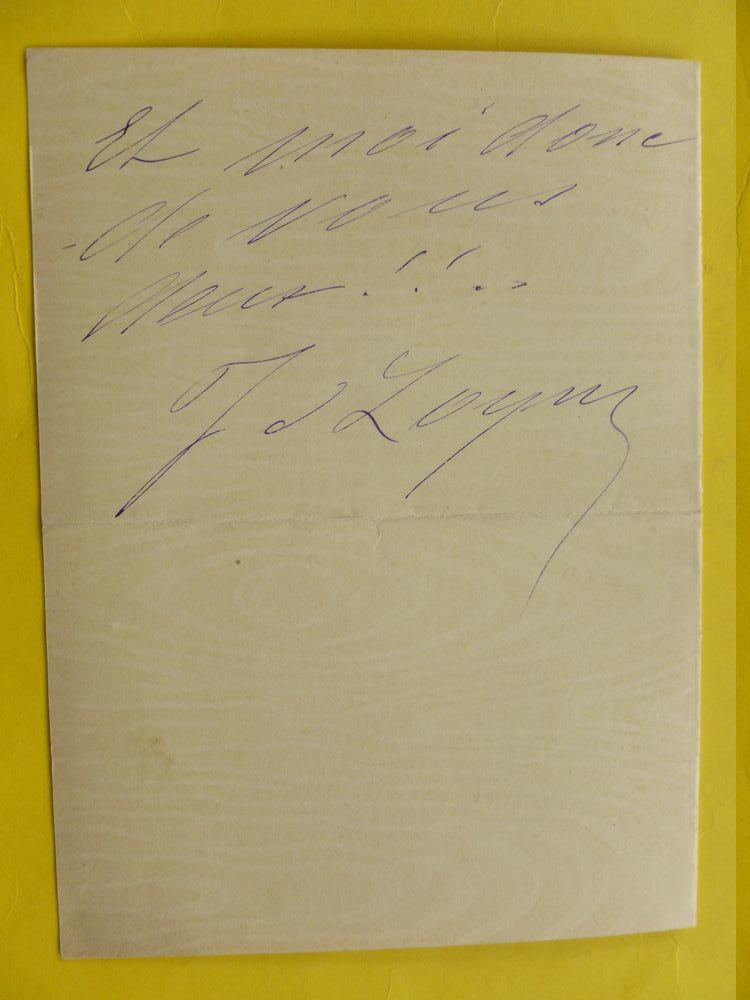 Et moi donc
de vous
deux!!..
J d Loyn